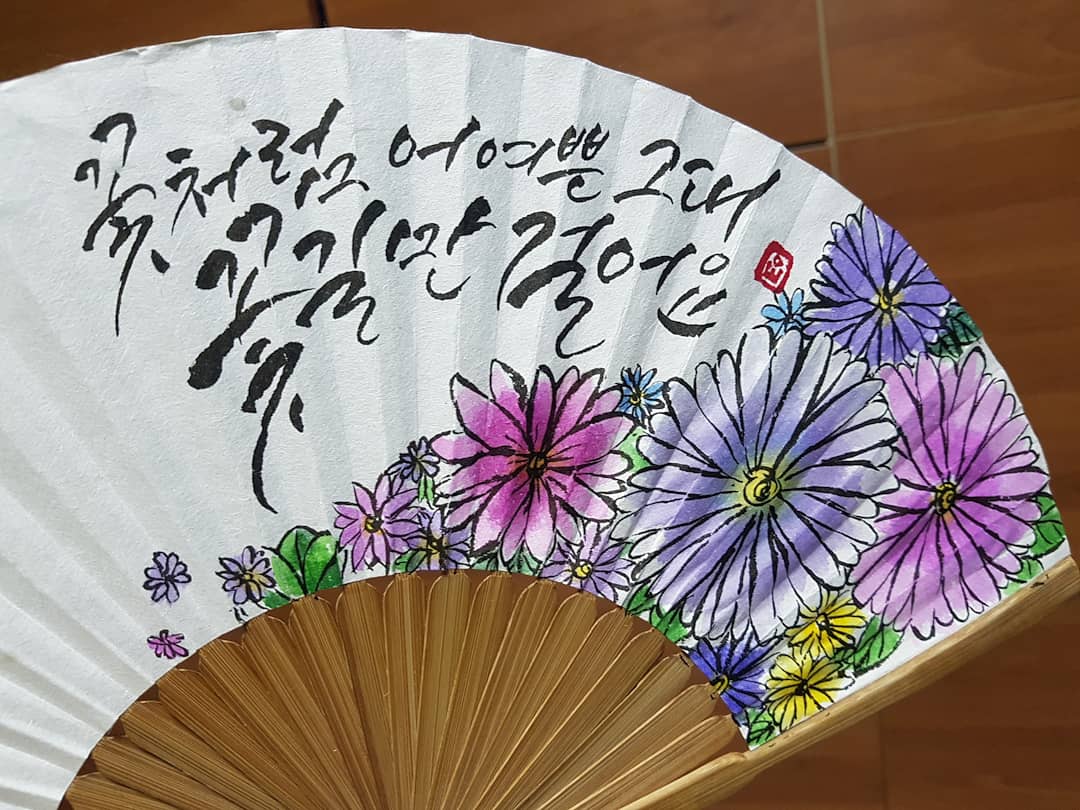 꽃처럼 어여쁜 그대
꽃길만 걸어요